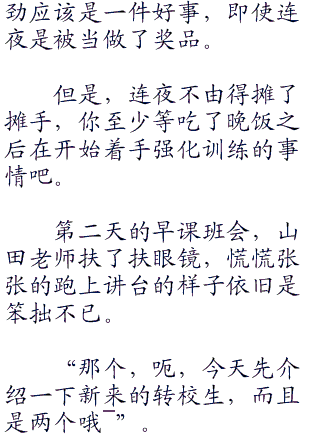 劲应该是一件好事，即使连
夜是被当做了奖品。
但是，连夜不由得摊了
摊手，你至少等吃了晚饭之
后在开始着手强化训练的事
情吧。
第二天的早课班会，山
田老师扶了扶眼镜，慌慌张
张的跑上讲台的样子依旧是
笨拙不已。
“那个，呃，今天先介
绍一下新来的转校生，而且
是两个哦¯”。